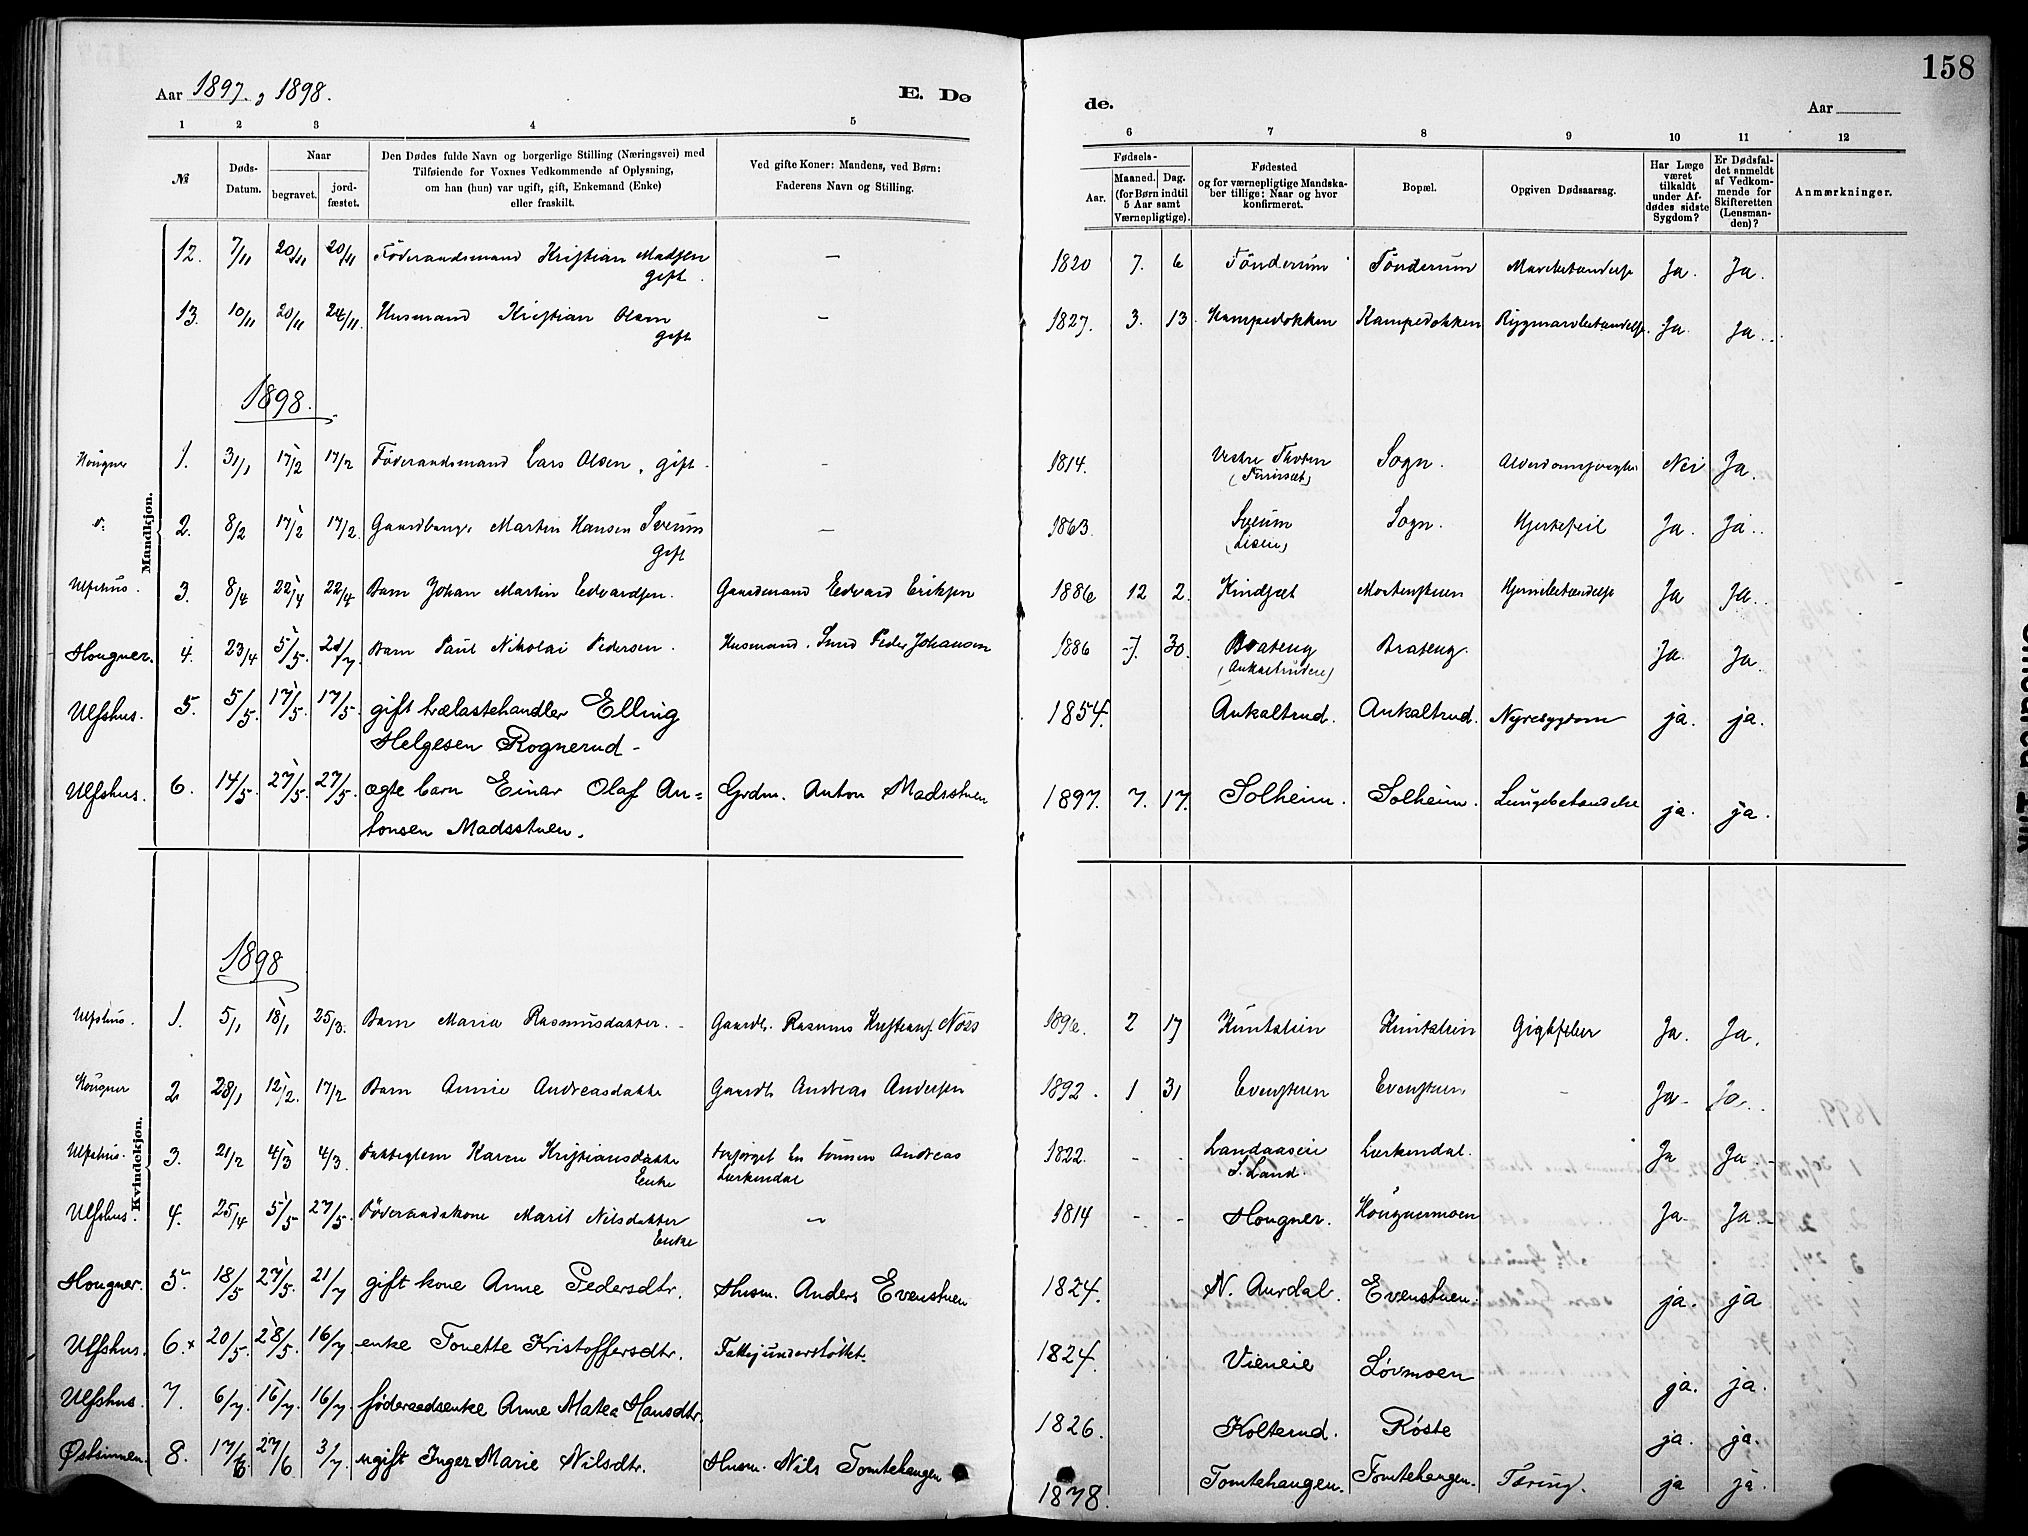 158
Aar 1897, 1898.
E. Dø
de.
Aar
1 2 3 4 5
6 7 8 9 10 11 12
№
Døds-Datum.
Naar
begravet.
jord-fæstet.
Den Dødes fulde Navn og borgerlige Stilling (Næringsvei) med
Tilføiende for Voxnes Vedkommende af Oplysning,
om han (hun) var ugift, gift, Enkemand (Enke)
eller fraskilt.
Ved gifte Koner: Mandens, ved Børn:
Faderens Navn og Stilling.
Fødsels-
Aar.
Maaned. Dag.
(for Børn indtil
5 Aar samt
Værnepligtige).
Fødested
og for værnepligtige Mandska-
ber tillige: Naar og hvor
konfirmeret.
Bopæl.
Opgiven Dødsaarsag.
Har Læge
været
tilkaldt
under Af-
dødes sidste
Sygdom?
Er Dødsfal-
det anmeldt
af Vedkom-
mende for
Skifteretten
(Lensman-
den)?
Anmærkninger.
Mandkjøn.
12. 7/11 20/11 20/11 Föderandsmand Kristian Madsen gift. — 1820 7. 6 Fönderum Fönderum Ja. Ja.
13. 10/11 20/11 24/11. Husmand Kristian Olsen gift — 1827. 3. 13. Kampedokken Kampedokken Rygmarvbetændelse. Ja. Ja.
1898.
Hougner 1. 31/1 17/2 17/2 Föderandsmand Lars Olsen, gift. — 1814. Vestre Thoten Sogn. Nei Ja.
2. 8/2 17/2 17/2. Gaardbruger Martin Hansen Sveum gift — 1863. Sveum Sogn. Hjertefeil Ja. Ja.
Ulfshus. 3. 8/4 22/4 22/4 Barn Johan Martin Edvardsen. Gaardmand Edvard Eriksen 1886 12 2. Kindsæt Mortenstuen Hjernebetændelse Ja Ja.
Hougner. 4. 23/4 5/5. 21/7. Barn Paul Nikolai Pedersen. Husmand. Smed Peder Johansen 1886 7. 30. Brateng Brateng. Ja. Ja.
Ulfshus. 5. 5/5. 17/5. 17/5. gift trælastehandler Elling
Helgesen Rognerud - 1854. Aukaltrud. Aukaltrud. Nyresygdom ja. ja.
Ulfshus. 6. 14/5. 27/5. 27/5. ægte barn Einar Olaf An=
tonsen Madsstuen. Grdm. Anton Madsstuen 1897. 7. 17. Solheim. Solheim. Lungebetændelse ja. ja.
1898
Kvindekjøn.
Ulfshus. 1. 5/1 18/1 25/3. Barn Maria Rasmusdatter. Gaardb. Rasmus Kristians. Nøss 1896. 2 17 Kuntstein Kuntstein Gigtfeber Ja. Ja.
Hougner 2 28/1 12/2. 17/2 Barn Annie Andreasdatte Gaardb. Andreas Andersen 1892. 1 31 Evenstuen Evenstuen — Ja. Ja.
Ulfshus. 3. 21/2 4/3 4/3. Fattiglem Karen Kristiansdatte Enke Forsörget hos sönnen Andreas Lærkendal 1822. - - Landaaseie S. Land. Lærkendal. Ja Ja
Ulfshus. 4. 25/4 5/5 27/5. Föderaadskone Marit Nilsdatter Enke — 1814 - - Hougner. Hougnermoen Ja. Ja.
Hougner. 5. 18/5 27/5. 21/7 gift kone Anne Pedersdtr. Husm. Anders Evenstuen 1824. N. Aurdal. Evenstuen. ja. ja
Ulfshus. 6.x 20/5. 28/5. 16/7 enke Tonette Kristoffersdtr. Fattigunderstøttet. 1824. Vieneie Løvmoen ja. ja.
Ulfshus. 7. 6/7. 16/7. 16/7. føderaadsenke Anne Matea Hansdtr. 1826. Kolterud. Røste ja. ja.
Østsinnen. 8. 17/6 27/6 3/7 ugift Inger Marie Nilsdtr. Husm. Nils Tomtehaugen 1878. Tomtehaugen. Tomtehaugen. Tæring. ja ja.